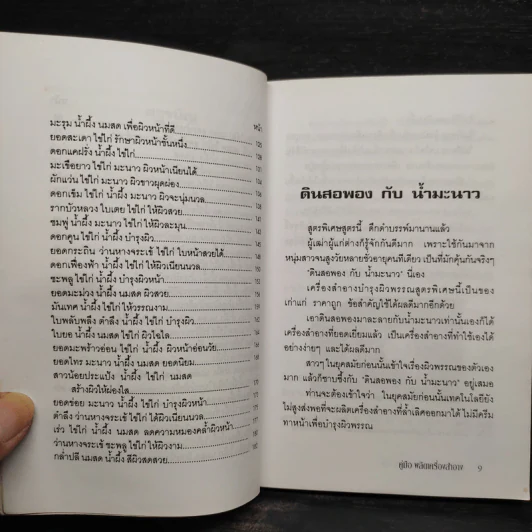 หน้า
มะรุม น้ำผึ้ง นมสด เพื่อผิวหน้าที่ดี
ยอดสะเดา ไข่ไก่ รักษาผิวหน้าชั้นหนึ่ง 125
ดอกแคฝรั่ง น้ำผึ้ง ไข่ไก่
มะเขือยาว ไข่ไก่ มะนาว ผิวหน้าเนียนใต้
ผักแว่น ไข่ไก่ มะนาว ผิวขาวผุดผ่อง
ดอกเข็ม ไข่ไก่ น้ำผึ้ง มะนาว ผิวจะนุ่มนวล
รากบัวหลวง ใบเตย ไข่ไก่ ให้ผิวสวย
ชมพู่ น้ำผึ้ง มะนาว ไข่ไก่ ให้ผิวละมุน
ดอกคูน ไข่ไก่ น้ำผึ้ง บำรุงผิว
ยอดกระถิน ว่านหางจระเข้ ไข่ไก่ ใบหน้าสวยใส
ดอกเฟื่องฟ้า น้ำผึ้ง ไข่ไก่ ให้ผิวเนียนนวล
ชะพลู ไข่ไก่ น้ำผึ้ง บำรุงผิวหน้า
ยอดมะม่วง น้ำผึ้ง นมสด ผิวสวย
มันเทศ น้ำผึ้ง ไข่ไก่ ให้วรรณงาม
ใบพลับพลึง ตำลึง น้ำผึ้ง ไข่ไก่ บำรุงผิว
ใบยอ น้ำผึ้ง นมสด ไข่ไก่ ผิวใยใส
ยอดมะพร้าวอ่อน ไข่ไก่ น้ำผึ้ง ผิวหน้าอ่อนวัย
ยอดไทร มะนาว น้ำผึ้ง นมสด ยอดนิยม
สาวน้อยประแป้ง น้ำผึ้ง ไข่ไก่ นมสด
สร้างผิวให้ผ่องใส
ยอดข่อย มะนาว น้ำผึ้ง ไข่ไก่ บำรุงผิวหน้า
ตำลึง ว่านหางจระเข้ ไข่ไก่ ได้ผิวเนียนนวล
เร่ว ไข่ไก่ น้ำผึ้ง นมสด ลดความหมองคล้ำผิวหน้า
ว่านหางจระเข้ ชะพลู ไข่ไก่ ให้ผิวงาม
กล่ำปลี นมสด น้ำผึ้ง สีผิวสดสวย
ดินสอพอง กับ น้ำมะนาว
สูตรพิเศษสูตรนี้ ดึกดำบรรพ์มานานแล้ว
ผู้เฒ่าผู้แก่ต่างก็รู้จักกันดีมาก เพราะใช้กันมาจาก
หนุ่มสาวจนสูงวัยหลายชั่วอายุคนทีเดียว เป็นที่มักคุ้นกันจริงๆ
'ดินสอพอง กับ น้ำมะนาว' นี่เอง
เครื่องสำอางบำรุงผิวพรรณสูตรพิเศษนี้เป็นของ
เก่าแก่ ราคาถูก ข้อสำคัญใช้ได้ผลดีมากอีกด้วย
เอาดินสอพองมาละลายกับน้ำมะนาวเท่านั้นเองก็ได้
เครื่องสำอางที่ยอดเยี่ยมแล้ว เป็นเครื่องสำอางที่ทำใช้เองได้
อย่างง่ายๆ และได้ผลดีมาก
สาวๆ ในยุคสมัยก่อนนั้นเข้าใจเรื่องผิวพรรณของตัวเอง
มาก แล้วก็ซาบซึ้งกับ 'ดินสอพอง กับ น้ำมะนาว' อยู่เสมอ
ท่านจะต้องเข้าใจว่า ในยุคสมัยก่อนนั้นเทคโนโลยียัง
ไม่สูงส่งพอที่จะผลิตเครื่องสำอางที่ล้ำเลิศออกมาได้ ไม่มีครีม
ทาหน้าเพื่อบำรุงผิวพรรณ
คู่มือ ผลิตเครื่องสำอาง 9